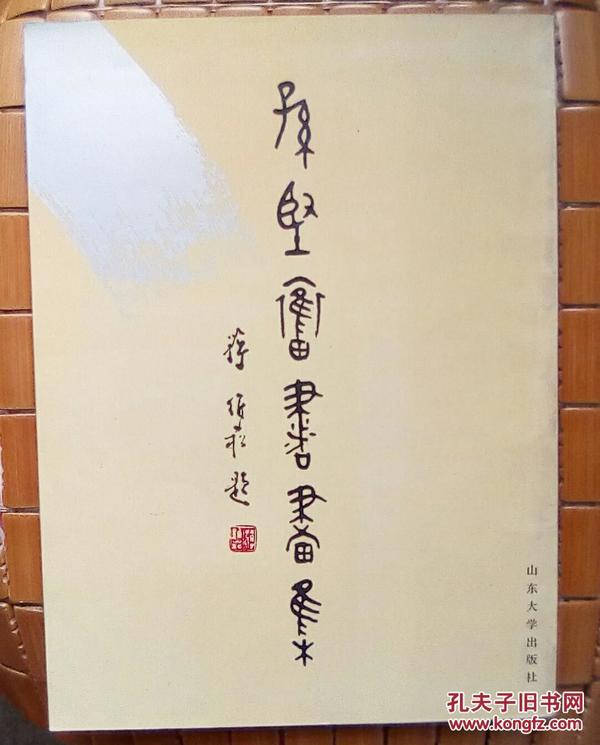 孫堅奮書畫集
蒋维崧题
山东大学出版社
孔夫子旧书网
www.kongfz.com